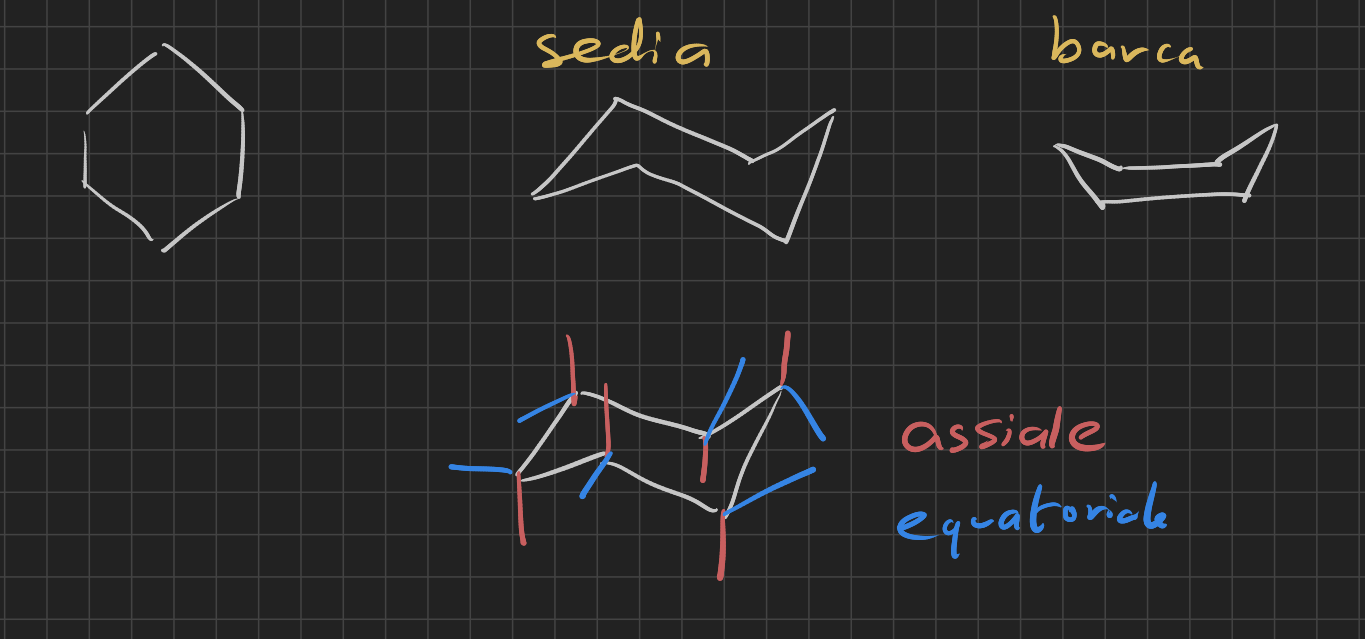 sedia
barca
assiale
equatoriale